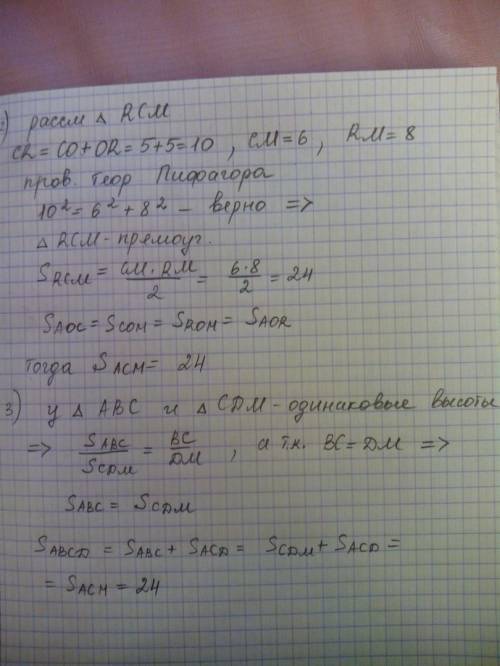 2) рассм △ RCM
CR = CO + OR = 5+5=10 , CM=6 , RM=8
пров. теор Пифагора
10² = 6² + 8² – верно =>
△ RCM - прямоуг.
S_RCM = CM · RM / 2 = 6·8 / 2 = 24
S_AOC = S_COM = S_ROM = S_AOR
Тогда S_ACM = 24
3) у △ ABC и △ CDM - одинаковые высоты
=> S_ABC / S_CDM = BC / DM , а т.к. BC = DM =>
S_ABC = S_CDM
S_ABCD = S_ABC + S_ACD = S_CDM + S_ACD =
= S_ACM = 24